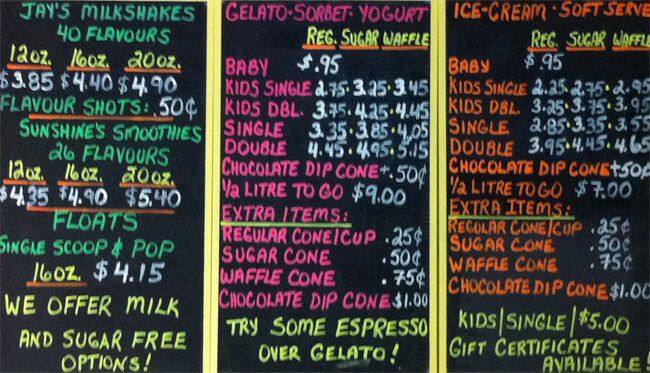 JAY'S MILKSHAKES
40 FLAVOURS
12oz. 16oz. 20oz.
$3.85 $4.40 $4.90
FLAVOUR SHOTS: 50¢
SUNSHINE'S SMOOTHIES
26 FLAVOURS
12oz. 16oz. 20oz.
$4.35 $4.90 $5.40
FLOATS
SINGLE SCOOP & POP
16oz. $4.15
WE OFFER MILK
AND SUGAR FREE
OPTIONS!
GELATO·SORBET·YOGURT
REG. SUGAR WAFFLE
BABY $.95
KIDS SINGLE 2.75·3.25·3.45
KIDS DBL. 3.75·4.25·4.45
SINGLE 3.35·3.85·4.05
DOUBLE 4.45·4.95·5.15
CHOCOLATE DIP CONE+.50¢
1/2 LITRE TO GO $9.00
EXTRA ITEMS:
REGULAR CONE/CUP .25¢
SUGAR CONE .50¢
WAFFLE CONE .75¢
CHOCOLATE DIP CONE $1.00
TRY SOME ESPRESSO
OVER GELATO!
ICE-CREAM·SOFT SERVE
REG. SUGAR WAFFLE
BABY $.95
KIDS SINGLE 2.25·2.75·2.95
KIDS DBL. 3.25·3.75·3.95
SINGLE 2.85·3.35·3.55
DOUBLE 3.95·4.45·4.65
CHOCOLATE DIP CONE+50¢
1/2 LITRE TO GO $7.00
EXTRA ITEMS:
REGULAR CONE/CUP .25¢
SUGAR CONE .50¢
WAFFLE CONE .75¢
CHOCOLATE DIP CONE $1.00
KIDS|SINGLE|$5.00
GIFT CERTIFICATES
AVAILABLE!